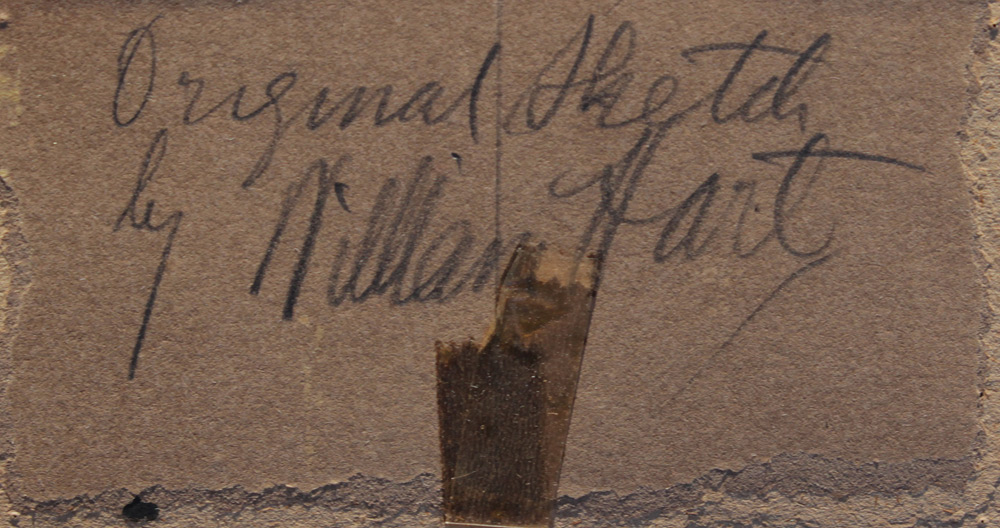 Original Sketch
by William Hart